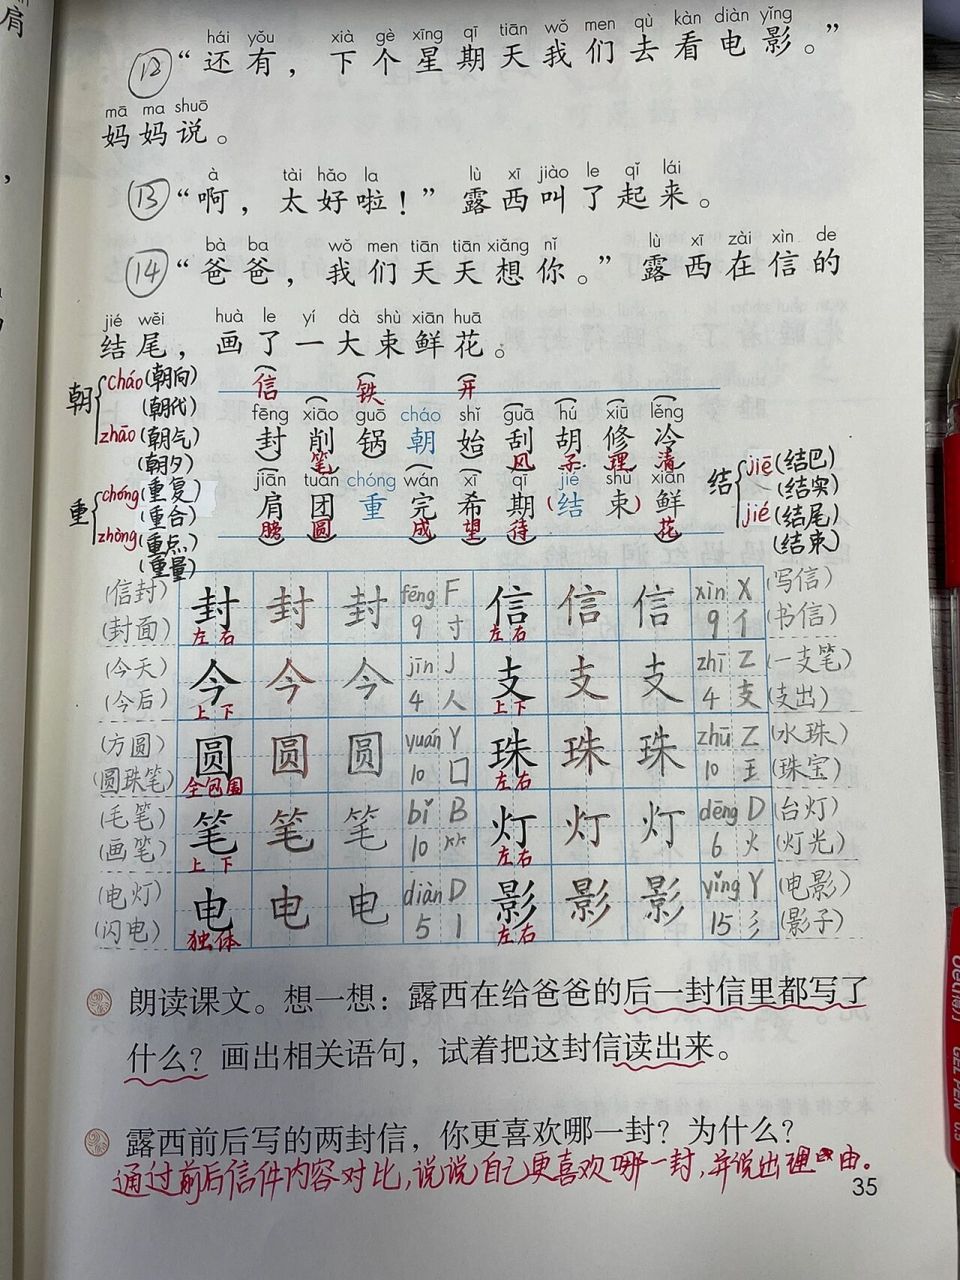 肩
hái yǒu xià gè xīng qī tiān wǒ men qù kàn diàn yǐng
⑫“还有，下个星期天我们去看电影。”
mā ma shuō
妈妈说。
à tài hǎo la lù xī jiào le qǐ lái
⑬“啊，太好啦！”露西叫了起来。
bà ba wǒ men tiān tiān xiǎng nǐ lù xī zài xìn de
⑭“爸爸，我们天天想你。”露西在信的
jié wěi huà le yí dà shù xiān huā
结尾，画了一大束鲜花。
朝 cháo(朝向)
(朝代)
zhāo(朝气)
(朝夕)
信 铁 开
fēng xiāo guō cháo shǐ guā hú xiū lěng
封 削 锅 朝 始 刮 胡 修 冷
笔 风 子 理 清
重 chóng(重复)
(重合)
zhòng(重点)
(重量)
jiān tuán chóng wán xī qī jié shù xiān
肩 团 重 完 希 期 (结 束) 鲜
膀 圆 成 望 待 花
结 jiē(结巴)
(结实)
jié(结尾)
(结束)
(信封) 封 封 封 fēng F 信 信 信 xìn X (写信)
(封面) 左右 9 寸 左右 9 亻 (书信)
(今天) 今 今 今 jīn J 支 支 支 zhī Z (一支笔)
(今后) 上下 4 人 上下 4 支 (支出)
(方圆) 圆 圆 圆 yuán Y 珠 珠 珠 zhū Z (水珠)
(圆珠笔) 全包围 10 囗 左右 10 王 (珠宝)
(毛笔) 笔 笔 笔 bǐ B 灯 灯 灯 dēng D (台灯)
(画笔) 上下 10 ⺮ 左右 6 火 (灯光)
(电灯) 电 电 电 diàn D 影 影 影 yǐng Y (电影)
(闪电) 独体 5 丨 左右 15 彡 (影子)
朗读课文。想一想：露西在给爸爸的后一封信里都写了
什么？画出相关语句，试着把这封信读出来。
露西前后写的两封信，你更喜欢哪一封？为什么？
通过前后信件内容对比，说说自己更喜欢哪一封，并说出理由。
35
deli得力
GEL PEN 0.5